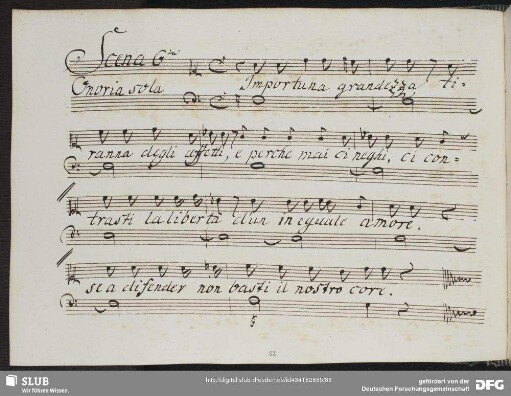 Scena 6ta
Onoria sola Importuna grandezza ti-
ranna degli affetti, e perche mai ci neghi, ci con-
trasti la libertà d'un ineguale amore.
se a difender non basti il nostro core.
62
SLUB
Wir führen Wissen.
gefördert von der
Deutschen Forschungsgemeinschaft
DFG